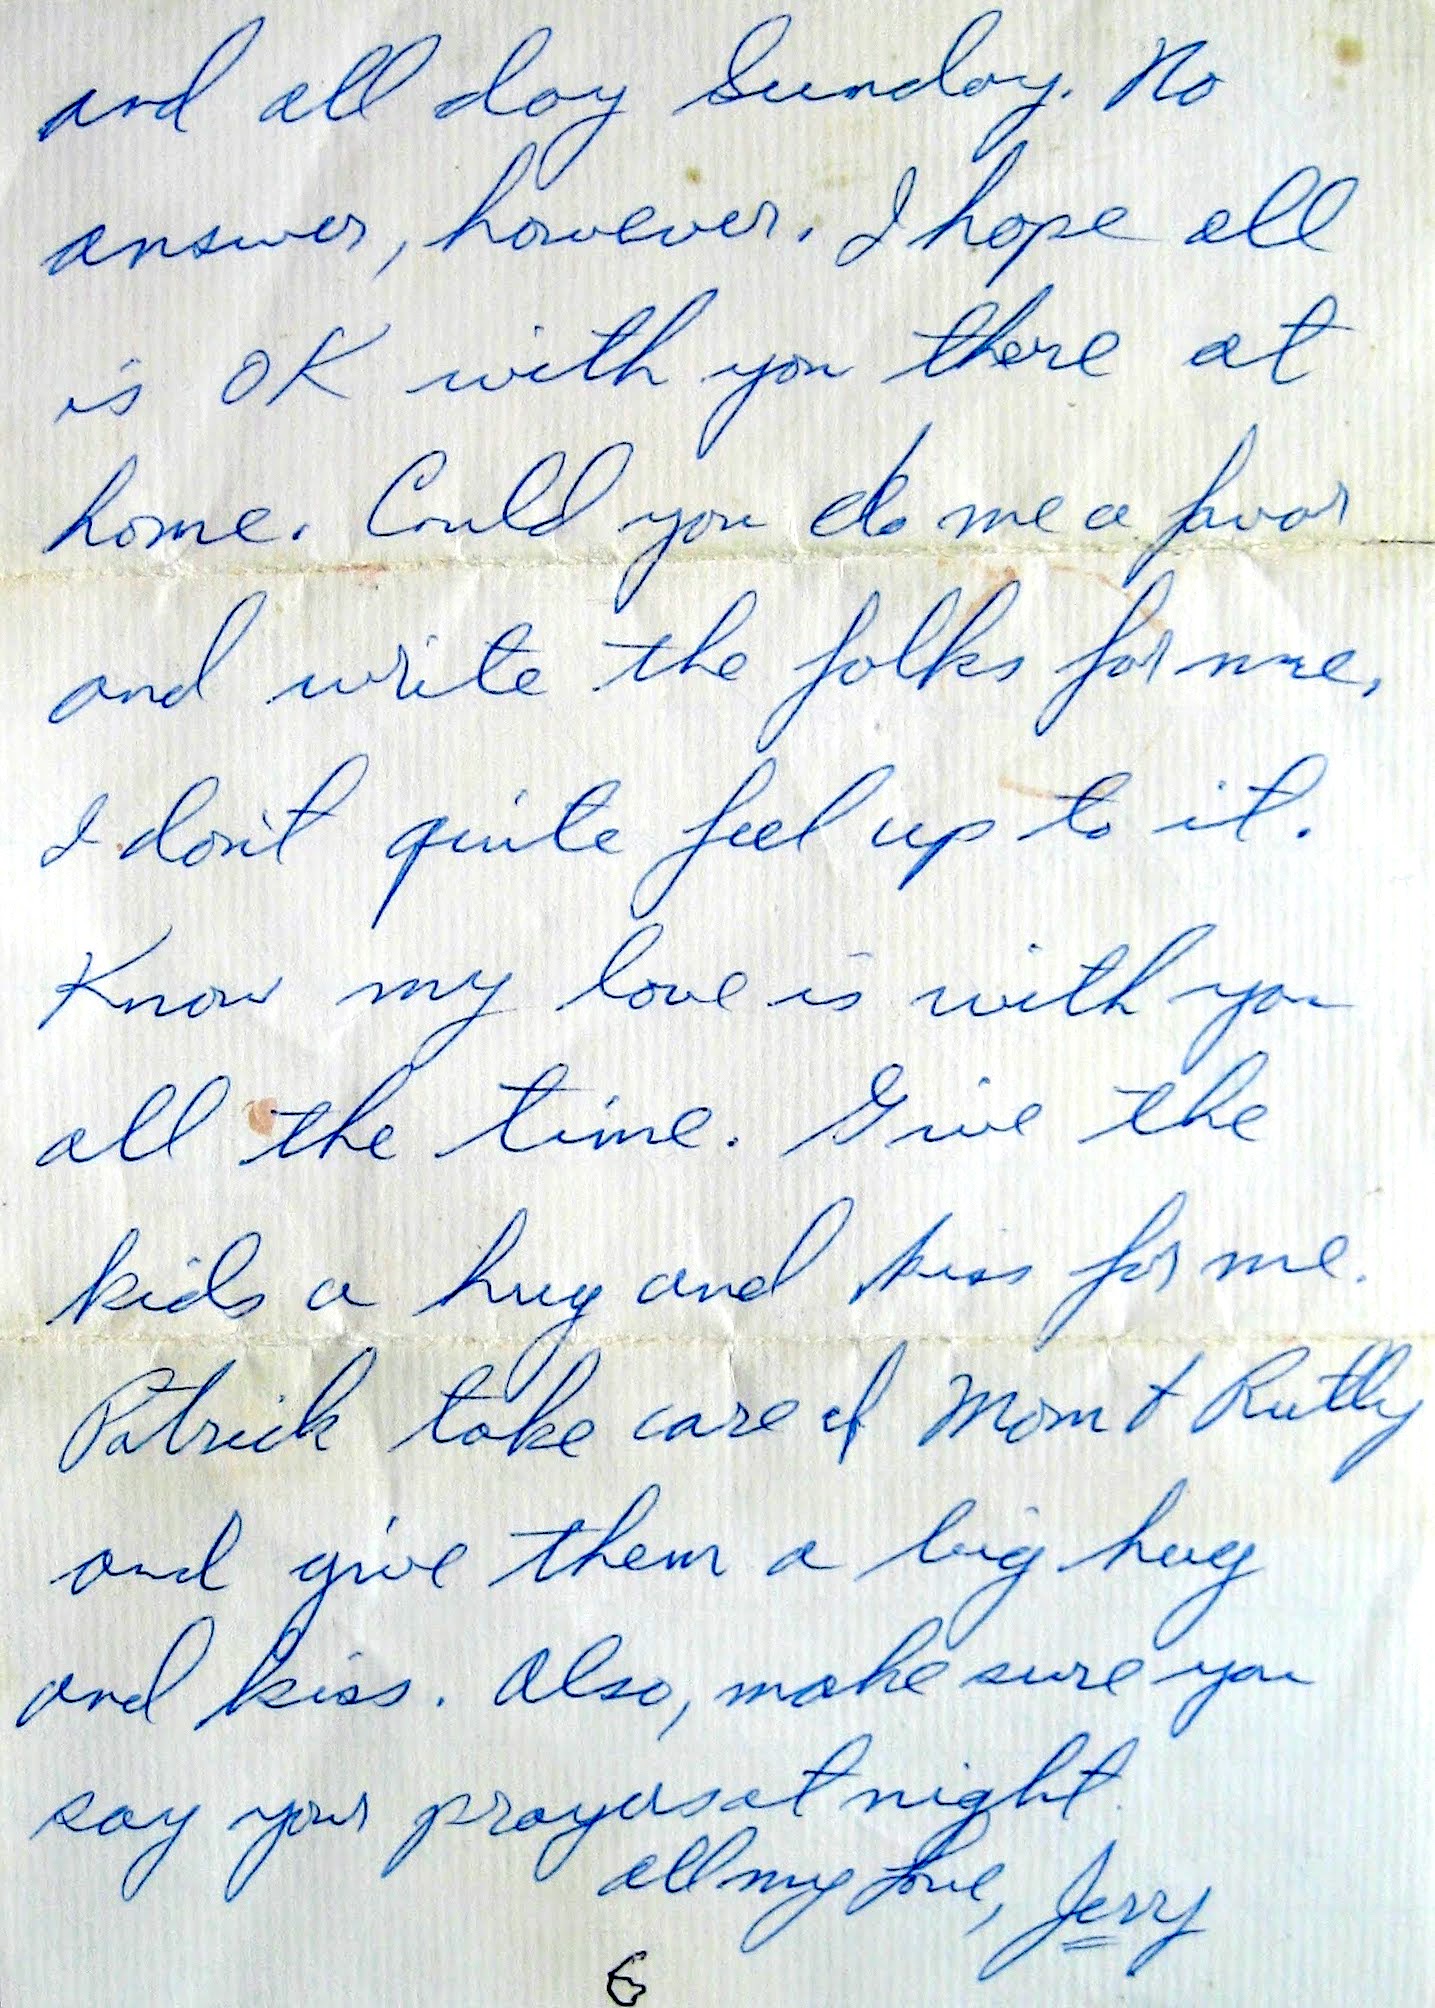 and all day Sunday. No
answer, however. I hope all
is OK with you there at
home. Could you do me a favor
and write the folks for me,
I don't quite feel up to it.
Know my love is with you
all the time. Give the
kids a hug and kiss for me.
Patrick take care of Mom &
and give them a big hug
and kiss. Also, make sure you
say your prayers at night.
All my love, Jerry
6